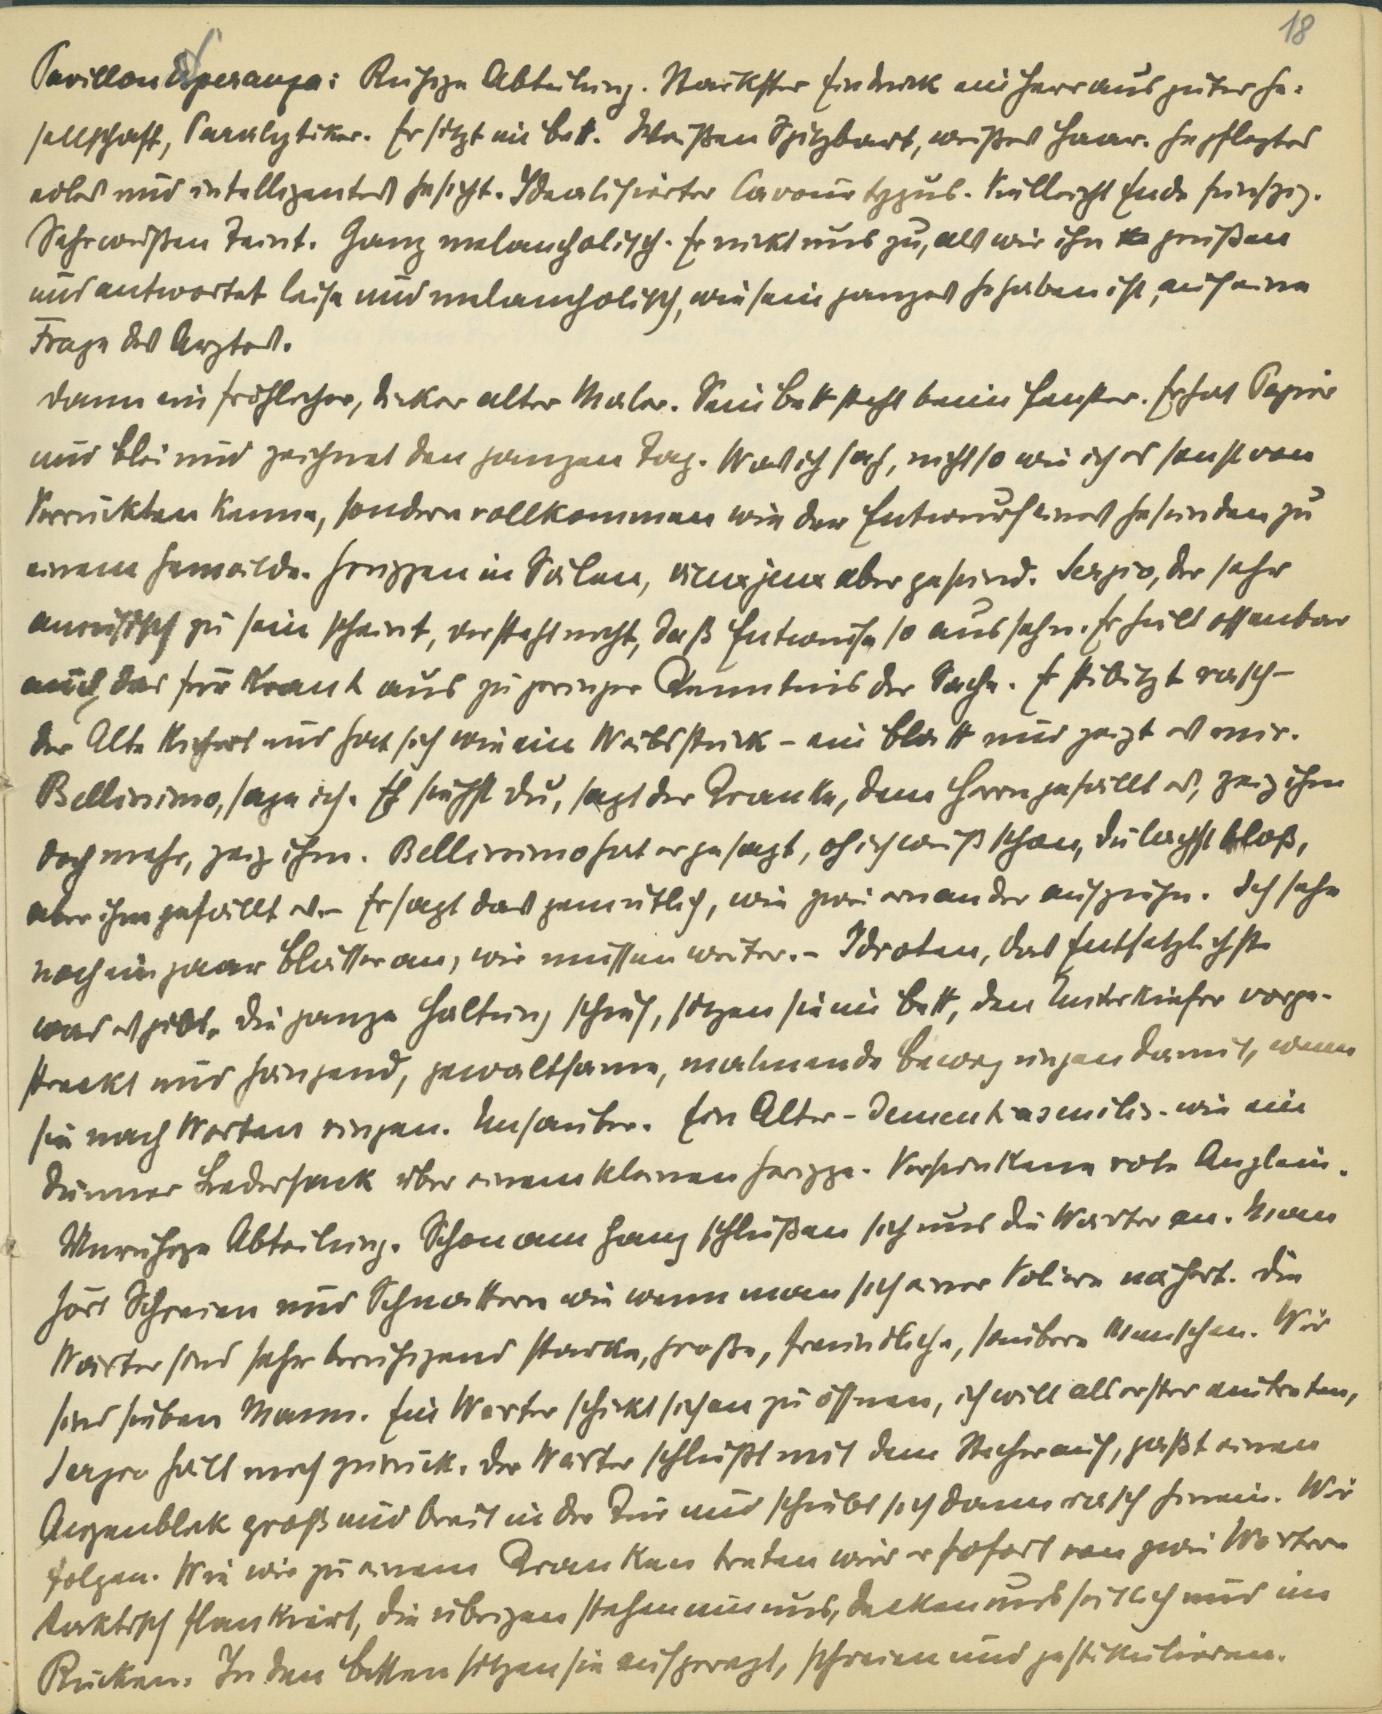 18
Pavillon Esperanza: Ruhige Abteilung. Stärkster Eindruck ein Herr aus guter Ge-
sellschaft, Paralytiker. Er sitzt im Bett. Weißen Spitzbart, weißes Haar. Gepflegtes
edles und intelligentes Gesicht. Idealisierter Cavourtypus. Vielleicht Ende fünfzig.
Sehr weißen Teint. Ganz melancholisch. Er nickt uns zu, als wir ihn grüßen
und antwortet leise und melancholisch, wie sein ganzes Gehaben ist, auf eine
Frage des Arztes.
Dann ein fröhlicher, dicker alter Maler. Sein Bett steht beim Fenster. Er hat Papier
und Blei und zeichnet den ganzen Tag. Was ich sah, nicht so wie ich es sonst von
Verrückten kenne, sondern vollkommen wie der Entwurf eines Gesunden zu
einem Gemälde. Gruppen in Sälen, aber gesund. Sergio, der sehr
zu sein scheint, versteht nicht, daß Entwürfe so aussehn. Er hält offenbar
auch das für krank aus zu geringer Kenntnis der Sache. Er stibitzt rasch –
der Alte kichert und hat sich wie ein Weibsstück – ein Blatt und zeigt es mir.
Bellissimo, sage ich. Eh siehst du, sagt der Kranke, dem Herrn gefällt es, zeig ihm
doch mehr, zeig ihm. Bellissimo hat er gesagt, oh ich weiß schon, du lachst bloß,
aber ihm gefällt es. – Er sagt das gemütlich, wie zwei einander aufziehn. Ich sehe
noch ein paar Blätter an, wir müssen weiter. – Idioten, das Entsetzlichste
was es gibt. Die ganze Haltung schief, sitzen sie im Bett, den Unterkiefer vorge-
streckt und hängend, gewaltsame, mahlende Bewegungen damit, wenn
sie nach Worten ringen. Unsauber. Ein Alter – Dementia senilis – wie ein
dünner Ledersack über einem kleinen Gerippe. Versunkene rote Äuglein.
Unruhige Abteilung. Schon am Gang schließen sich uns die Wärter an. Man
hört Schreien und Schnattern wie wenn man sich einer Voliere nähert. Die
Wärter sind sehr beruhigend starke, große, freundliche, saubere Menschen. Wir
sind sieben Mann. Ein Wärter schickt sich an zu öffnen, ich will als erster eintreten,
Sergio hält mich zurück. Der Wärter schließt mit dem Stecher auf, paßt einen
Augenblick groß und breit in der Tür und schiebt sich dann rasch hinein. Wir
folgen. Wie wir zu einem Kranken treten wird er sofort von zwei Wärtern
taktisch flankiert, die übrigen stehen um uns, decken uns seitlich und im
Rücken. In den Betten sitzen sie aufgeregt, schreien und gestikulieren.